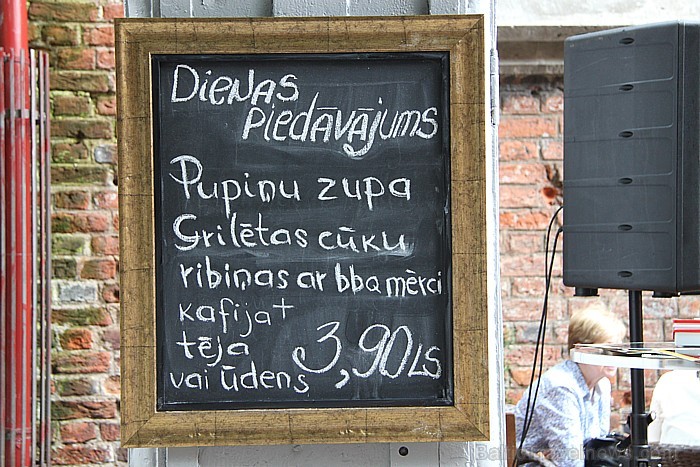 Dienas
Piedāvājums
Pupiņu zupa
Grilētas cūku
ribiņas ar bbq mērci
kafija+
tēja
vai ūdens 3,90 LS